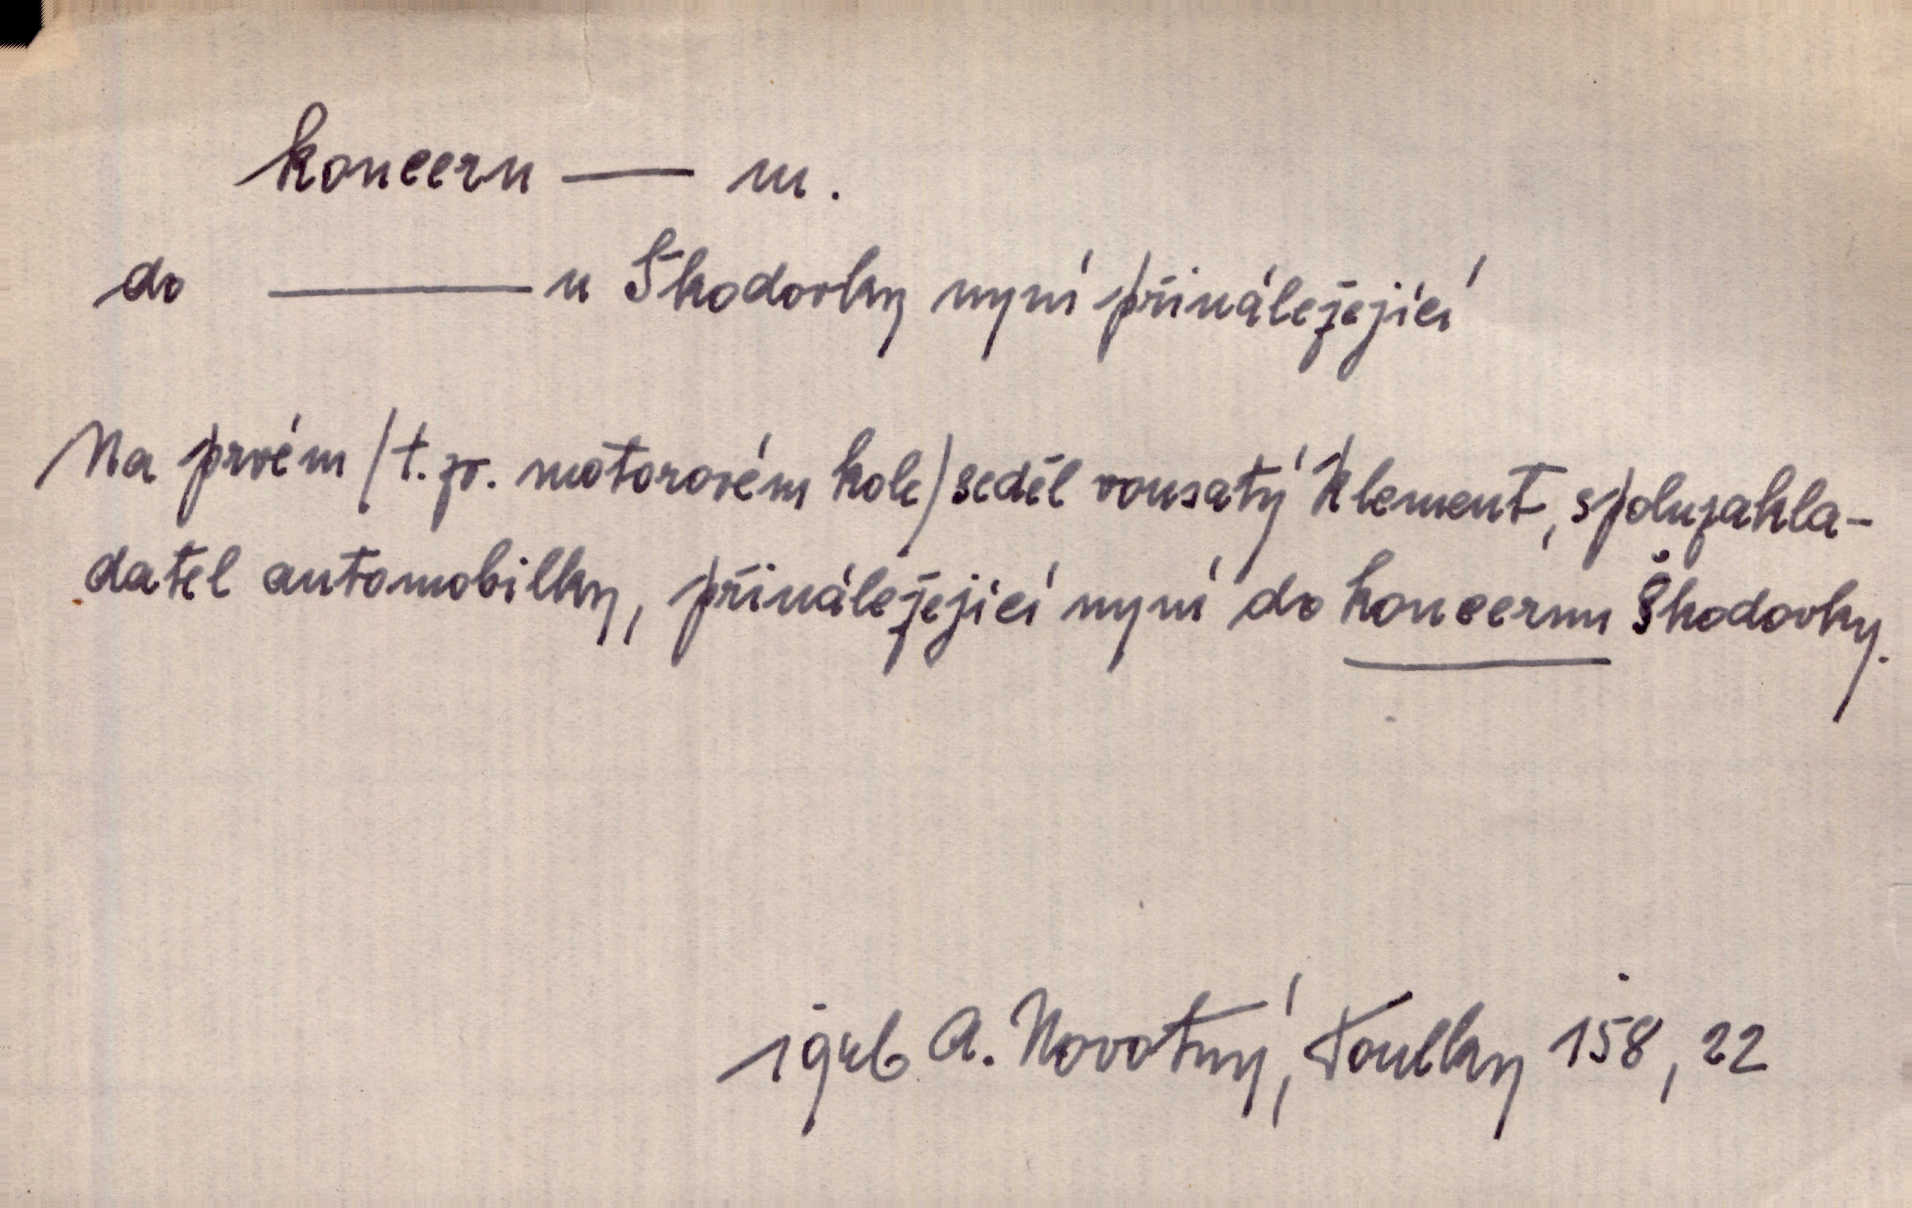 koncern — m.
do —— u Škodovky nyní přináležející
Na prvém /t. zv. motorovém kole/ seděl vousatý Klement, spoluzakla-
datel automobilky, přináležející nyní do koncernu Škodovky.
1946 A. Novotný, Toulky 158, 22